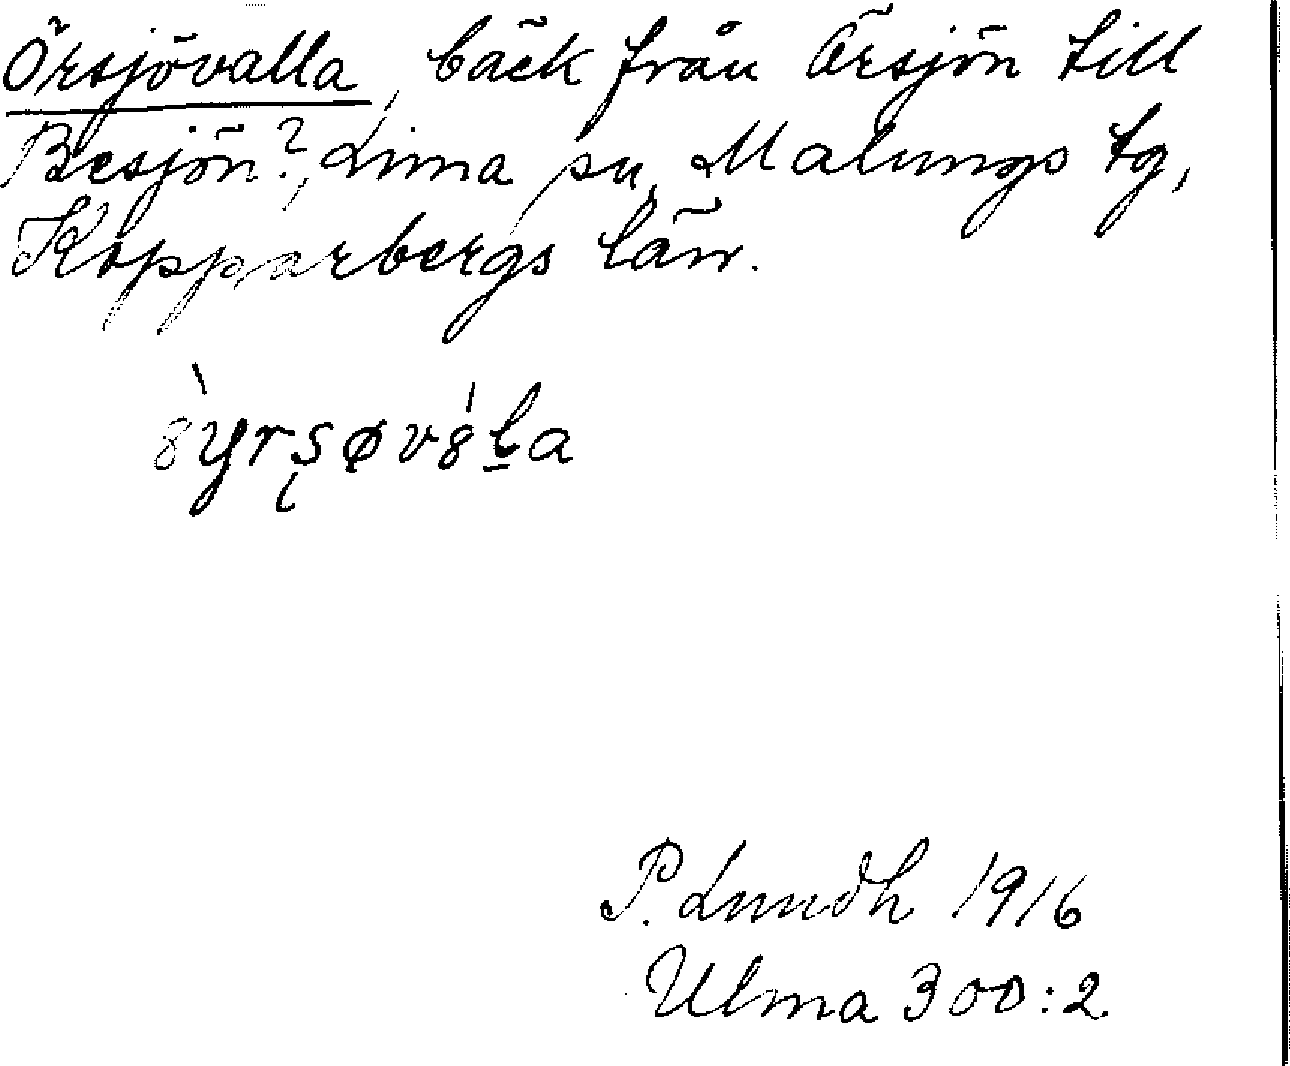 Örsjövalla, bäck från Örsjön till
Besjön?, Lima sn, Malungs tg,
Kopparbergs län.
P. Lundh 1916
Ulma 300:2